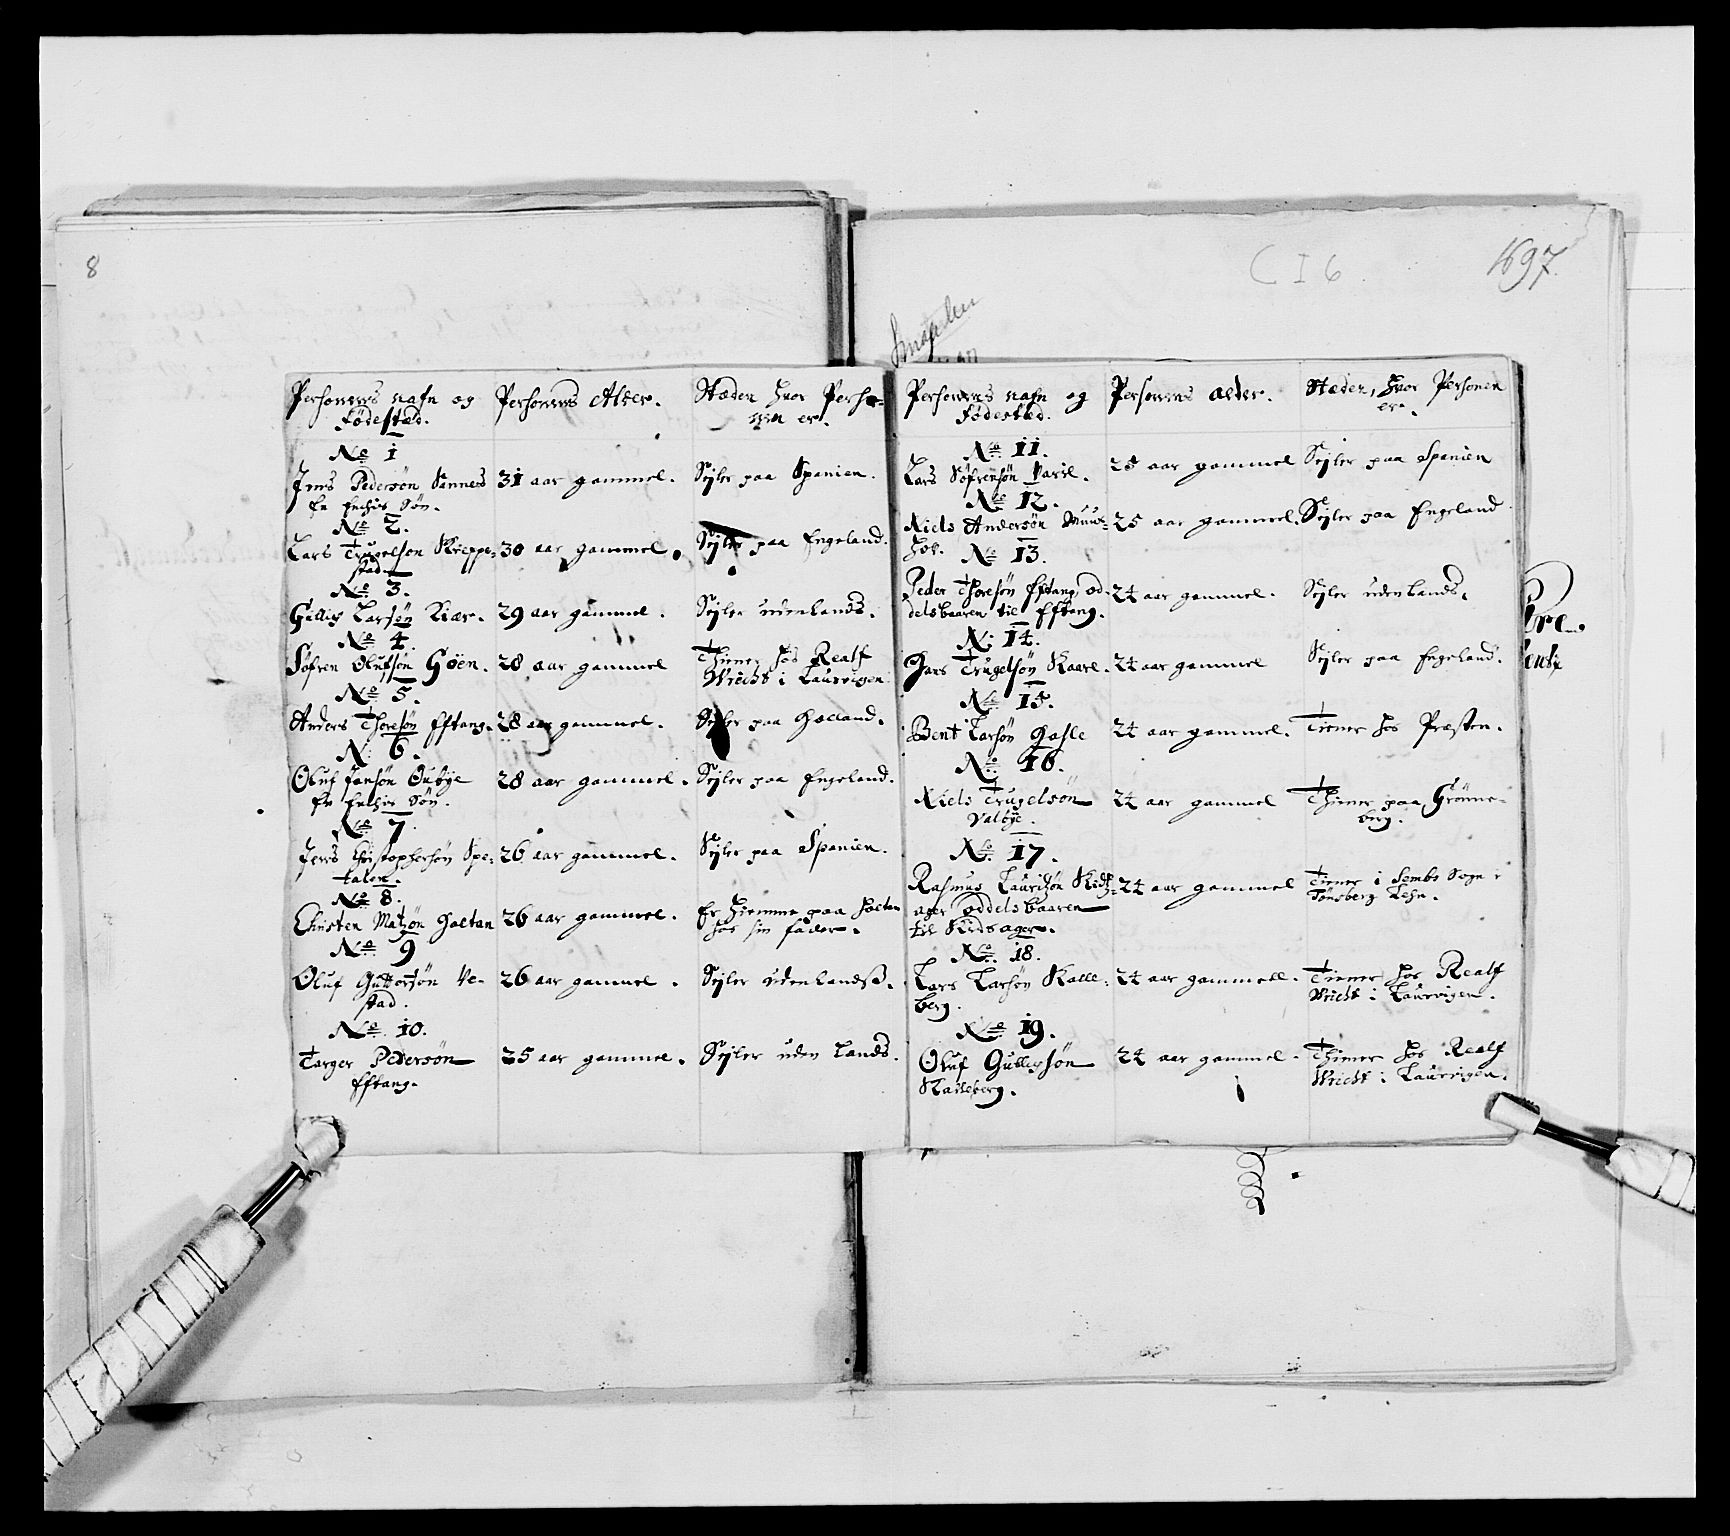 8
C I 6
1697
Personens nafn og
Fødestæd.
Personens Alder.
Stæden hvor Perso-
nen er.
No 1
Jens Pedersøn Sannes
En Enchis Søn.
31 aar gammel.
Sejler paa Spanien.
No 2.
Lars Trugelsøn Skieppe-
stad.
30 aar gammel.
Sejler paa Engeland.
No 3.
Gullig Larsøn Kiær.
29 aar gammel.
Sejler udenlands.
No 4.
Søfren Olufsøn Goen.
28 aar gammel
Thiener hos Realf
Wricht i Laurvigen
No 5.
Anders Thoresøn Efftang.
28 aar gammel.
Sejler paa Holland.
N: 6.
Oluf Jansøn Oubye
En Enchis Søn.
28 aar gammel.
Sejler paa Engeland.
No 7.
Jens Christophersøn Spe-
talen.
26 aar gammel.
Sejler paa Spanien.
No 8.
Christen Matzøn Holtan
26 aar gammel.
Er hiemme paa Holtan
hos sin fader.
No 9
Oluf Guttorsøn Ve-
stad.
26 aar gammel.
Sejler udenlandsß.
No 10.
Targer Pedersøn
Efftang.
25 aar gammel.
Sejler uden Lands.
Personens nafn og
Fødestæd.
Personens alder.
Stæden, hvor Personen
er.
No 11.
Lars Søfrensøn Varil.
25 aar gammel
Sejler paa Spanien
No 12.
Niels Andersøn Muus-
hol.
25 aar gammel.
Sejler paa Engeland
No 13.
Peder Thoresøn Efftang od-
delsbaaren til Efftang.
24 aar gammel.
Sejler uden Lands.
N: 14.
Hans Trugelsøn Kaare.
24 aar gammel
Sejler paa Engeland.
No 15.
Bent Larsøn Hasle
24 aar gammel.
Tiener hos Præsten.
No 16.
Niels Trugelsøn
Valbye.
24 aar gammel
Thiener paa Grønne-
berg.
No 17.
Rasmus Lauritzøn Kids-
ager oddelsbaaren
til Kidsager.
24 aar gammel
Tiener i Sembs Sogn i
Tønsberg Lehn.
No 18.
Lars Larsøn Kalle-
berg.
24 aar gammell.
Tiener hos Realf
Wricht i Laurvigen.
No 19.
Oluf Gullegsøn
Kalleberg.
24 aar gammel.
Thiener hos Realf
Wricht i Laurvigen.